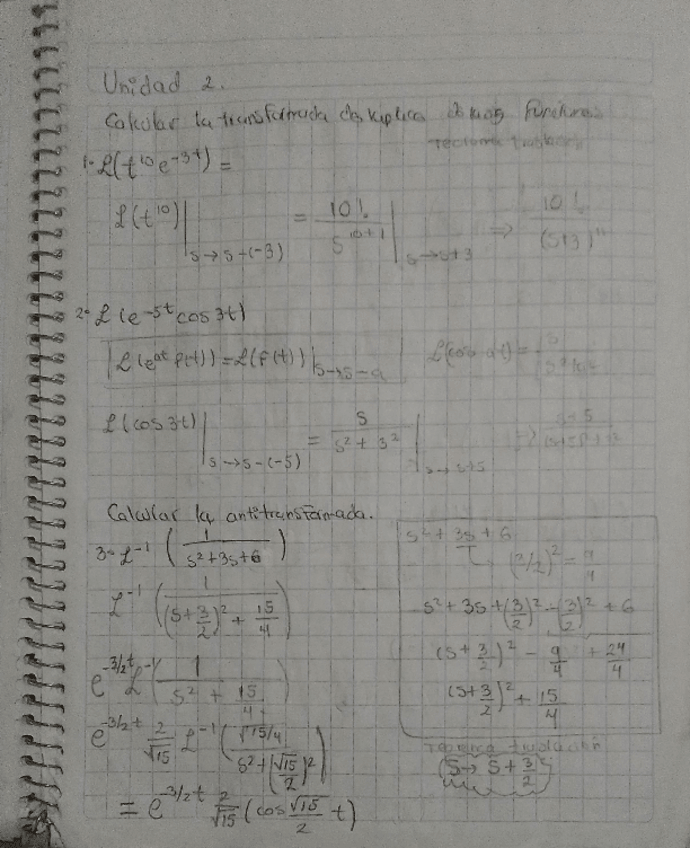 Unidad 2.
Calcular la transformada de funciones
Teorema traslación
1. ℒ(t¹⁰e⁻³ᵗ) =
ℒ(t¹⁰)|ₛ→ₛ₋₍₋₃₎ = 10!/s¹⁰⁺¹|ₛ→ₛ₊₃ ⇒ 10!/(s+3)¹¹
2. ℒ(e⁻⁵ᵗcos3t)
ℒ(eᵃᵗ f(t)) = ℒ(f(t))|ₛ→ₛ₋ₐ ℒ(cos at) =
ℒ(cos3t)|ₛ→ₛ₋₍₋₅₎ = s/(s² + 3²)|ₛ→ₛ₊₅ ⇒
Calcular la antitransformada.
3. ℒ⁻¹(1/(s²+3s+6))
ℒ⁻¹(1/((s+3/2)² + 15/4))
e^(-3/2 t) ℒ⁻¹(1/(s² + 15/4))
e^(-3/2 t) 2/√15 ℒ⁻¹(√15/4/(s²+(√15/2)²))
= e^(-3/2 t) 2/√15 (cos √15/2 t)
s² + 3s + 6
(3/2)² = 9/4
s² + 3s + (3/2)² - (3/2)² + 6
(s+3/2)² - 9/4 + 24/4
(s+3/2)² + 15/4
traslación
(s → s + 3/2)